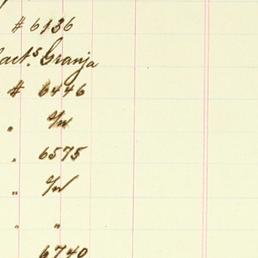 # 6136
Sact.s Granja
# 6446
" 
" 6575
"
" "
6740